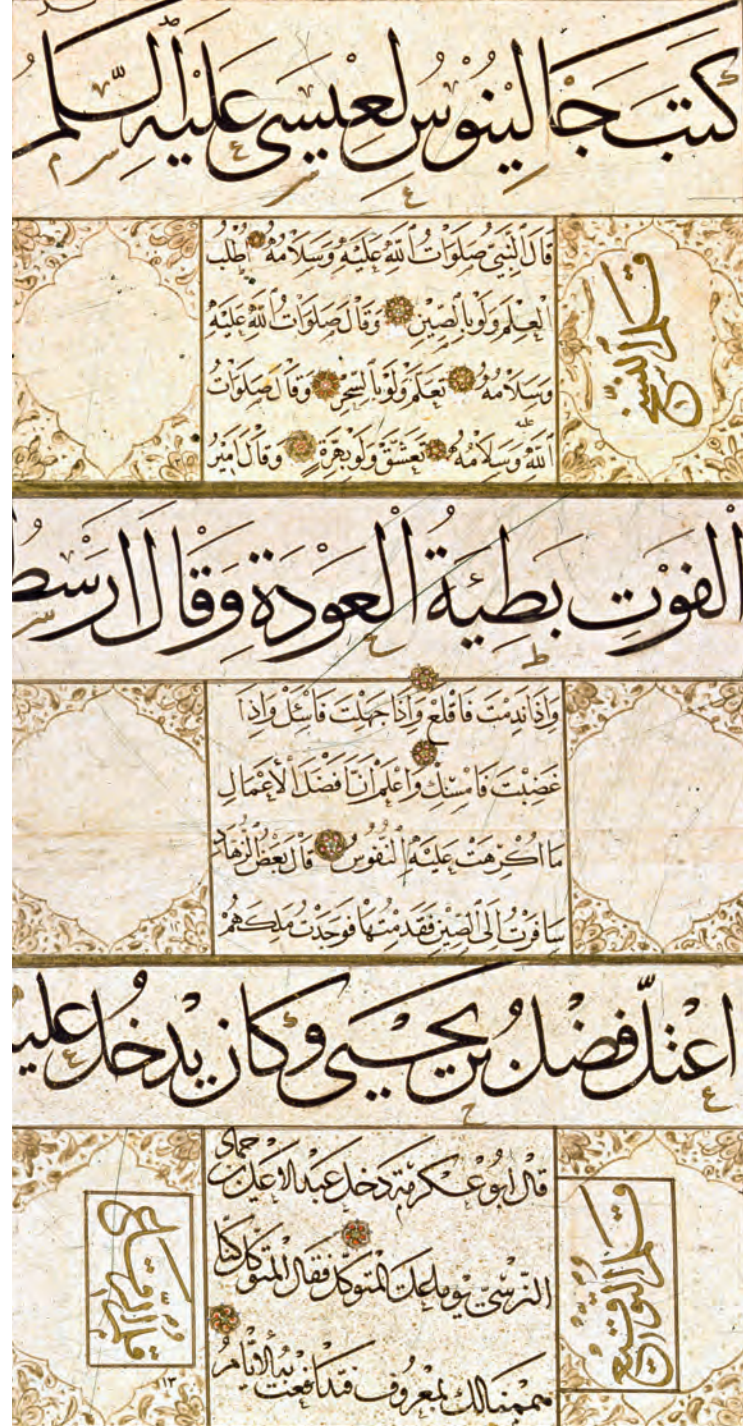 كتب جالينوس لعيسى عليه السلم
قَالَ النَّبِيُّ صَلَوَاتُ اللّٰهِ عَلَيْهِ وَسَلَامُهُ اُطْلُبُ
الْعِلْمَ وَلَوْ بِالصِّينِ وَقَالَ صَلَوَاتُ اللّٰهِ عَلَيْهِ
وَسَلَامُهُ تَعَلَّمْ وَلَوْ بِالسِّحْرِ وَقَالَ صَلَوَاتُ
اللّٰهِ عليه وَسَلَامُهُ تَعَشَّقْ وَلَوْ بِهِرَّةٍ وَقَالَ اَمِيرُ
قلم النسخ
الفَوْتِ بَطِيئَةُ الْعَوْدَةِ وَقَالَ ارسط
وَاِذَا نَدِمْتَ فَاقْلَعْ وَاِذَا جَهِلْتَ فَاسْئَلْ وَاِذَا
غَضِبْتَ فَامْسِكْ وَاعْلَمْ اَنَّ اَفْضَلَ الْاَعْمَالِ
مَا اُكْرِهَتْ عَلَيْهِ النُّفُوسُ قَالَ بَعْضُ الزُّهَّادِ
سَافَرْتُ اِلَى الصِّينِ فَقَدِمْتُهَا فَوَجَدْتُ مَلِكَهُمْ
١٢
اعْتَلَّ فَضْلُ بْنُ يَحْيَى وَكَانَ يَدْخُلُ عليه
قال ابو عكرمة دخل عبد الاعلى بن حماد
النرسي يوما على المتوكل فقال المتوكل كنا
هممنا لك بمعروف فتدافعت به الايام
قلم التوقيع
قلم الرقاع
١٣